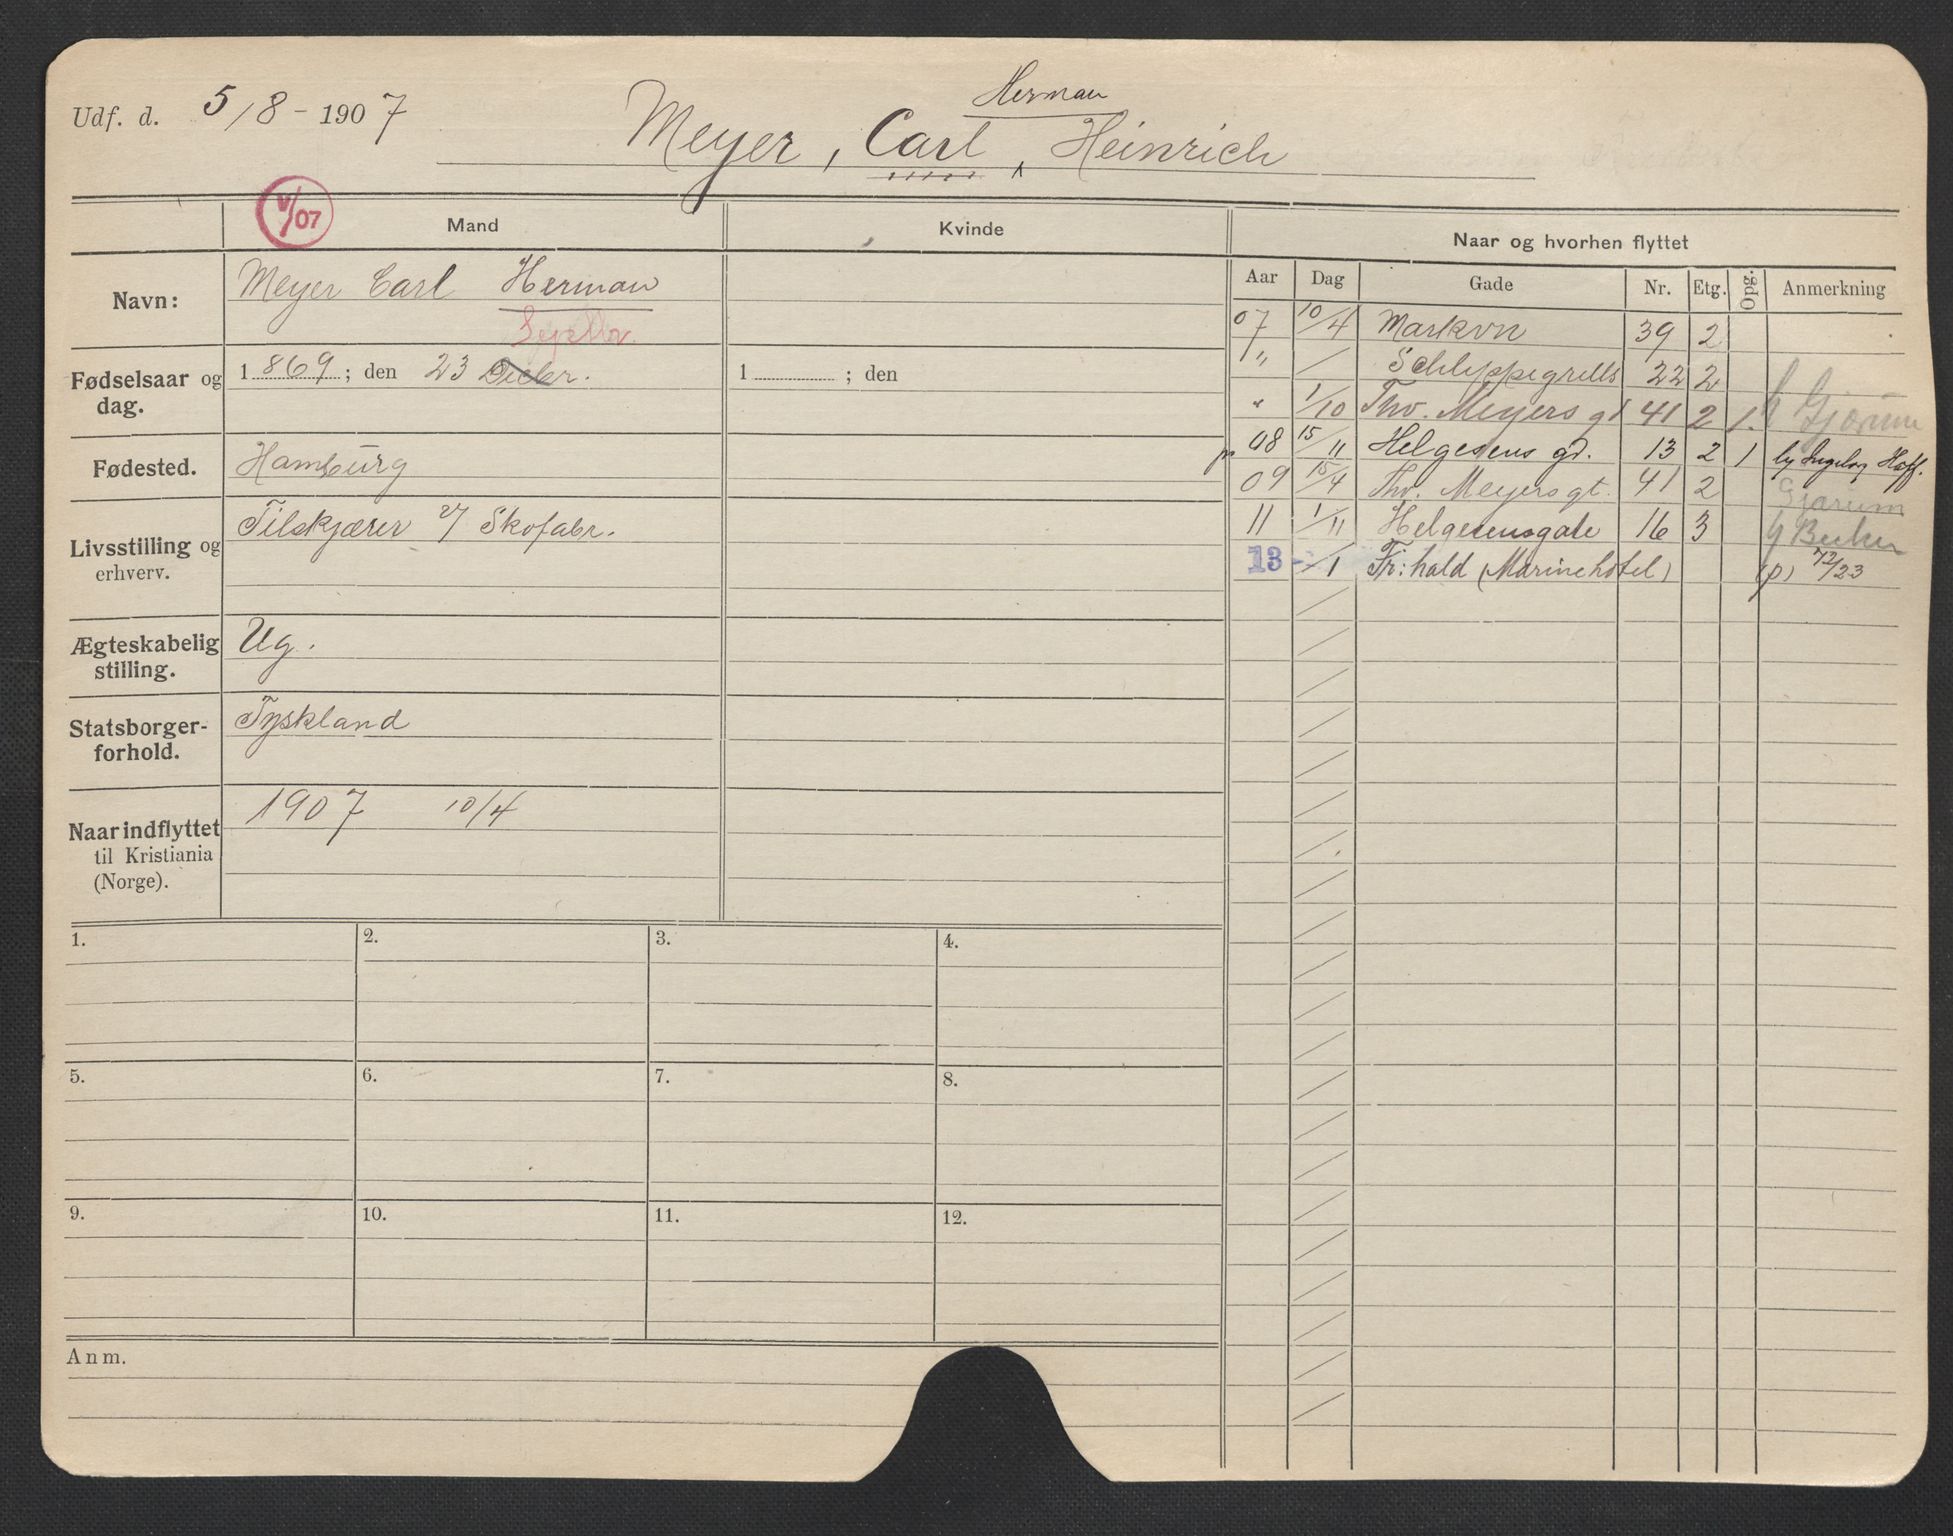 Udf. d. 5/8 - 1907
Herman
Meyer, Carl, Heinrich
V/07
Mand
Kvinde
Naar og hvorhen flyttet
Aar Dag Gade Nr. Etg. Opg. Anmerkning
Navn: Meyer Carl Herman
Septbr.
Fødselsaar og dag. 1869; den 23 Decbr.
1 ; den
Fødested. Hamburg
Livsstilling og erhverv. Tilskjærer v/ Skofabr.
Ægteskabelig stilling. Ug.
Statsborgerforhold. Tyskland
Naar indflyttet til Kristiania (Norge). 1907 10/4
07 10/4 Markvn 39 2
" / Schleppegrells 22 2
" 1/10 Thv. Meyers gt 41 2 1. Gjørum
08 15/11 Helgesens gd. 13 2 1 Ingeborg Hoff.
09 15/4 Thv. Meyers gt. 41 2 Gjørum
11 1/11 Helgesensgate 16 3
13 - /1 Fr:hald (Marinehotel) (p) 72/23
1.
2.
3.
4.
5.
6.
7.
8.
9.
10.
11.
12.
Anm.